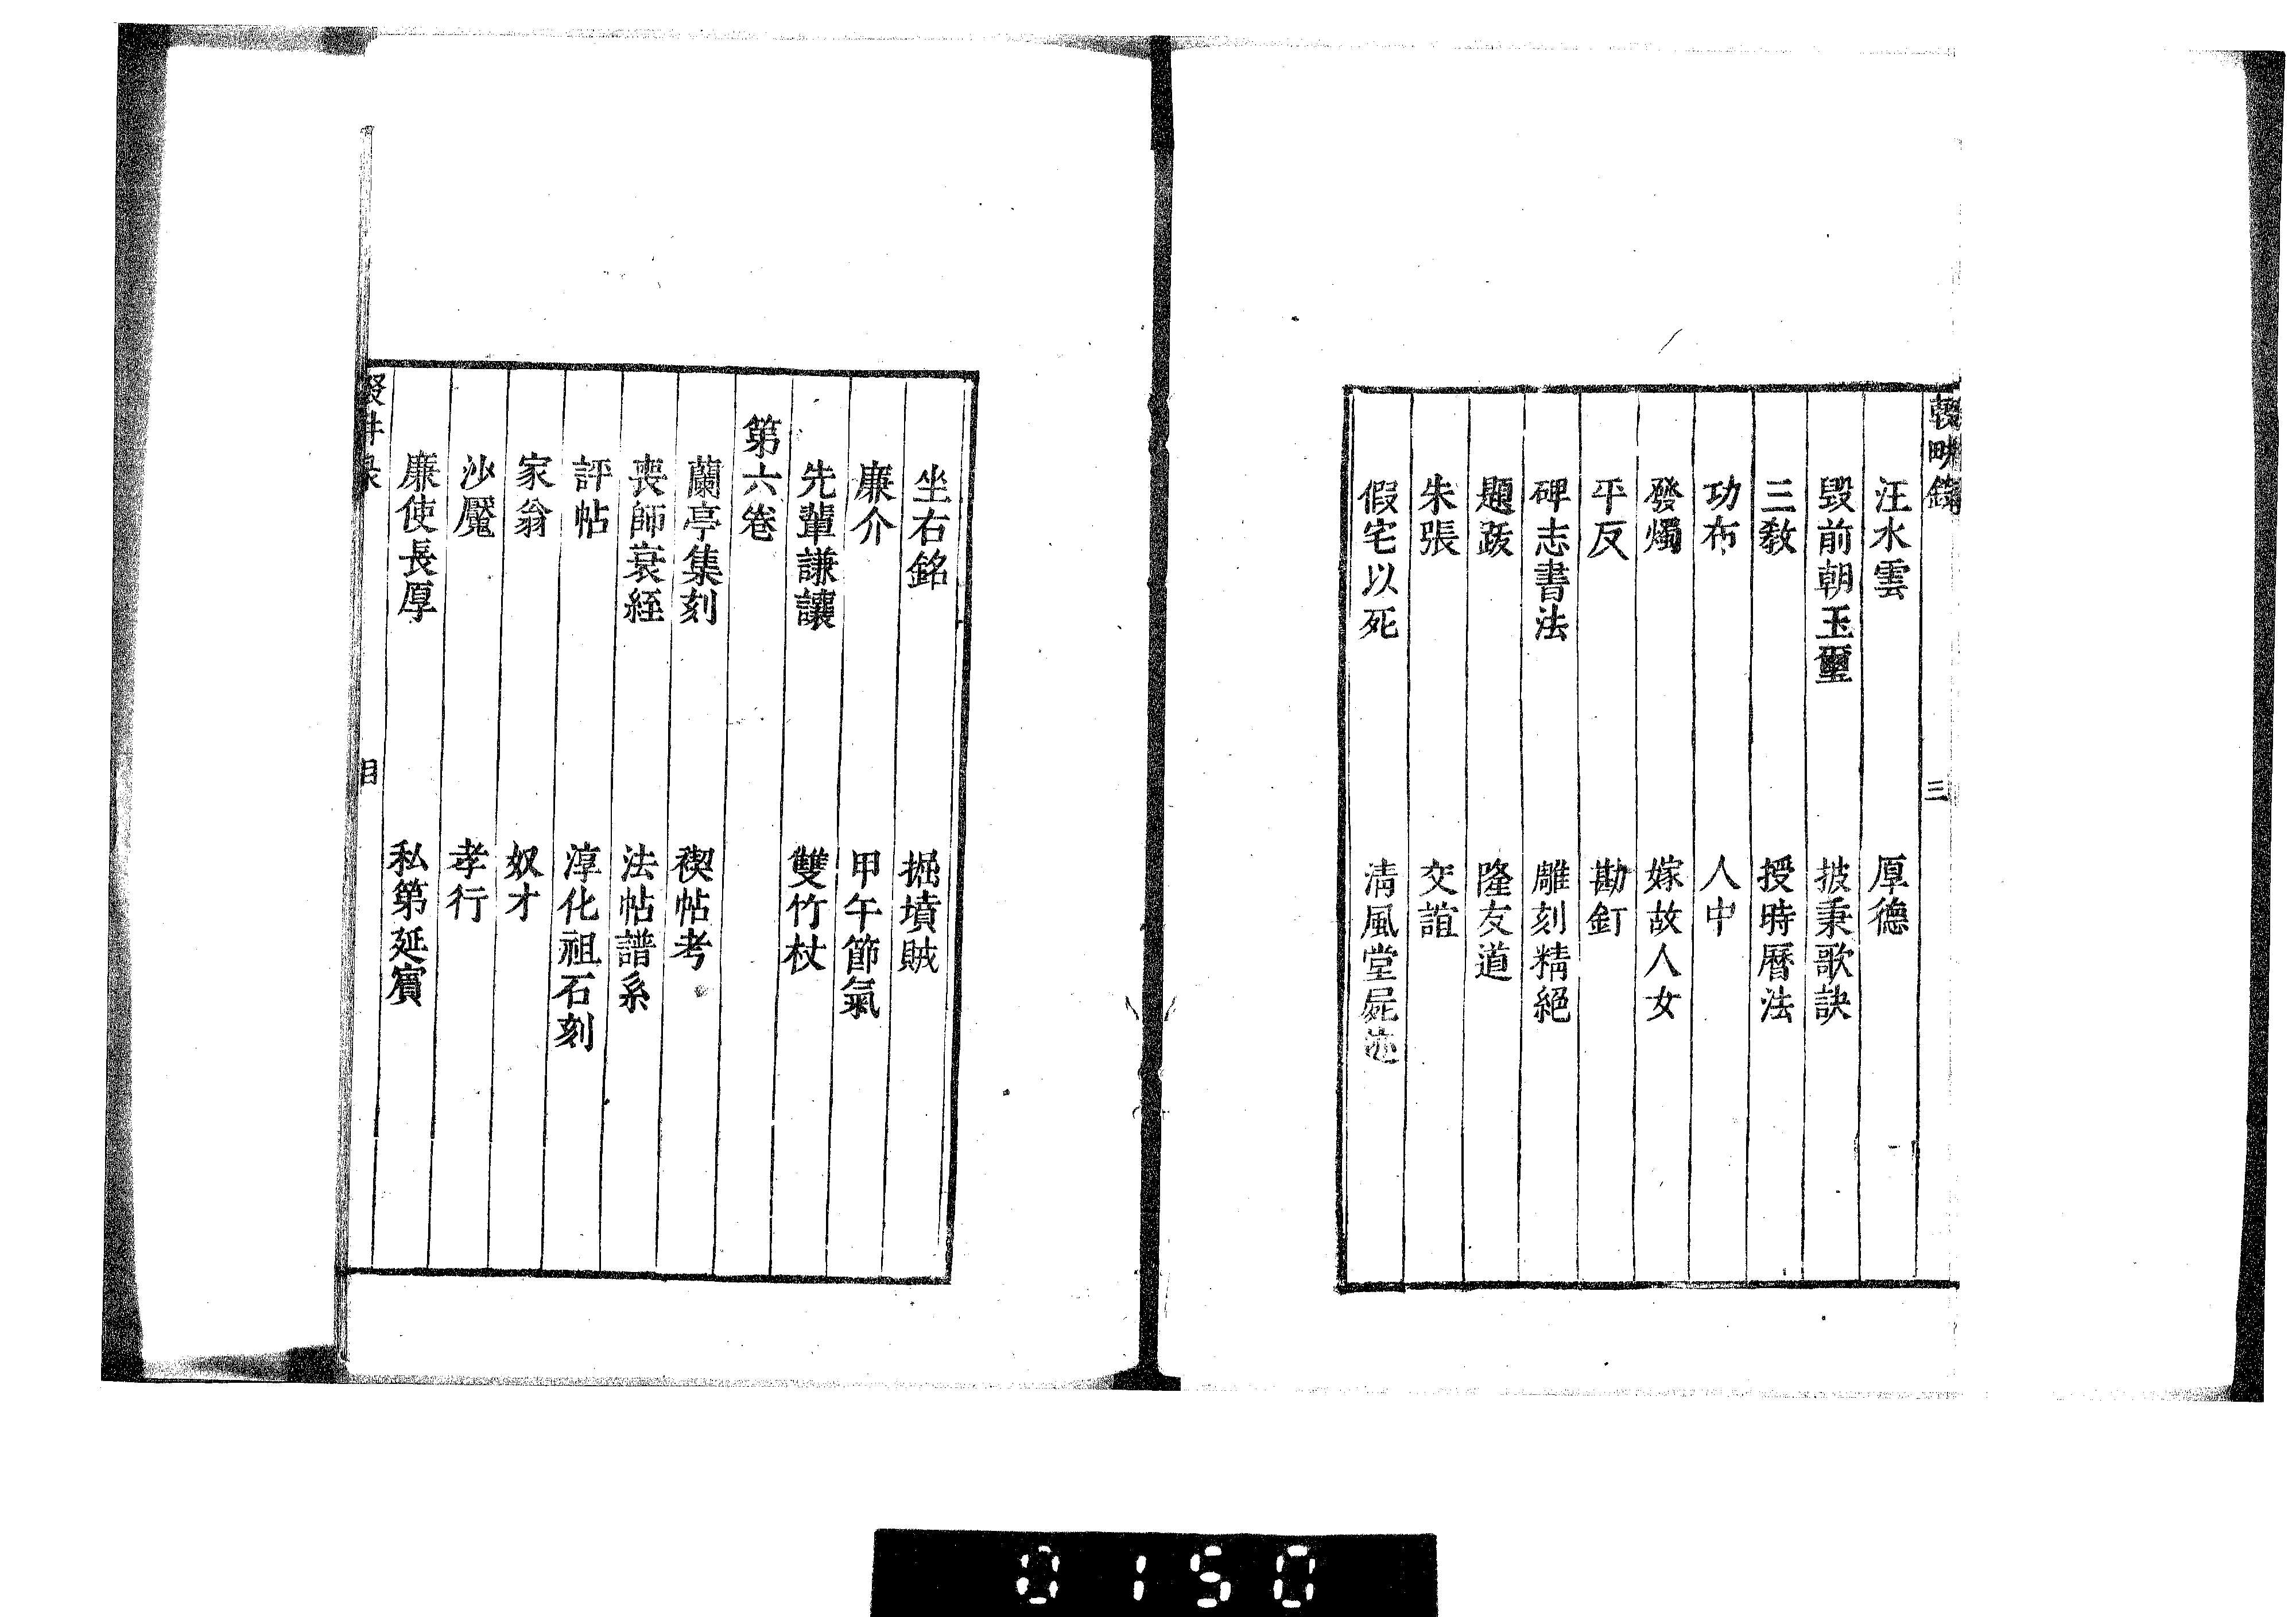 輟畊錄 三
汪水雲 厚德
毀前朝玉璽 披秉歌訣
三教 授時曆法
功布 人中
發燭 嫁故人女
平反 勘釘
碑志書法 雕刻精絕
題跋 隆友道
朱張 交誼
假宅以死 清風堂屍迹
坐右銘 掘墳賊
廉介 甲午節氣
先輩謙讓 雙竹杖
第六卷
蘭亭集刻 禊帖考
喪師衰絰 法帖譜系
評帖 淳化祖石刻
家翁 奴才
沙魘 孝行
廉使長厚 私第延賓
目
0150